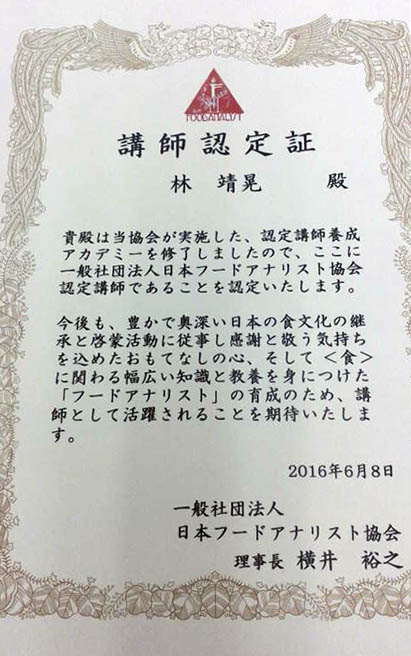 FOODANALYST
講師認定証
林 靖晃 殿
貴殿は当協会が実施した、認定講師養成
アカデミーを修了しましたので、ここに
一般社団法人日本フードアナリスト協会
認定講師であることを認定いたします。
今後も、豊かで奥深い日本の食文化の継
承と啓蒙活動に従事し感謝と敬う気持ち
を込めたおもてなしの心、そして＜食＞
に関わる幅広い知識と教養を身につけた
「フードアナリスト」の育成のため、講
師として活躍されることを期待いたしま
す。
2016年6月8日
一般社団法人
日本フードアナリスト協会
理事長 横井 裕之